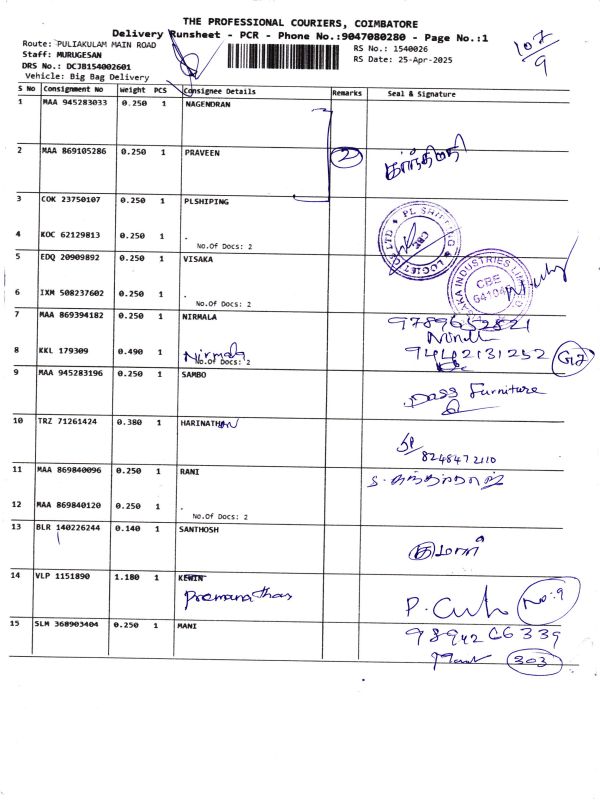 THE PROFESSIONAL COURIERS, COIMBATORE
Delivery Runsheet - PCR - Phone No.:9047080280 - Page No.:1
Route: PULIAKULAM MAIN ROAD
RS No.: 1540026
107/9
Staff: MURUGESAN
RS Date: 25-Apr-2025
DRS No.: DCJB154002601
Vehicle: Big Bag Delivery
S No Consignment No Weight PCS Consignee Details Remarks Seal & Signature
1 MAA 945283033 0.250 1 NAGENDRAN
2 MAA 869105286 0.250 1 PRAVEEN 2
3 COK 23750107 0.250 1 PLSHIPING
PL SHIPPING & LOGISTICS LTD
CBE
4 KOC 62129813 0.250 1 .
No.Of Docs: 2
5 EDQ 20909892 0.250 1 VISAKA
VISAKA INDUSTRIES LIMITED
CBE
641045
6 IXM 508237602 0.250 1 .
No.Of Docs: 2
7 MAA 869394182 0.250 1 NIRMALA 9789652821
8 KKL 179309 0.490 1 Nirmala 9442131252
No.Of Docs: 2
9 MAA 945283196 0.250 1 SAMBO
Dass Furniture
10 TRZ 71261424 0.380 1 HARINATHAN
8248472110
11 MAA 869840096 0.250 1 RANI
12 MAA 869840120 0.250 1 .
No.Of Docs: 2
13 BLR 140226244 0.140 1 SANTHOSH
குமார்
14 VLP 1151890 1.180 1 KEWIN
Premanathan
No:9
15 SLM 368903404 0.250 1 MANI 9894266339
303